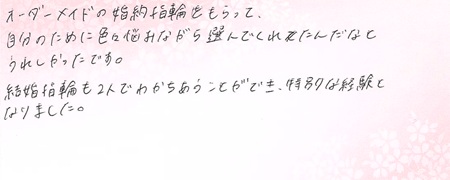 オーダーメイドの婚約指輪をもらって、
自分のために色々悩みながら選んでくれてたんだなと
うれしかったです。
結婚指輪も2人でわかちあうことができ、特別な経験と
なりました。